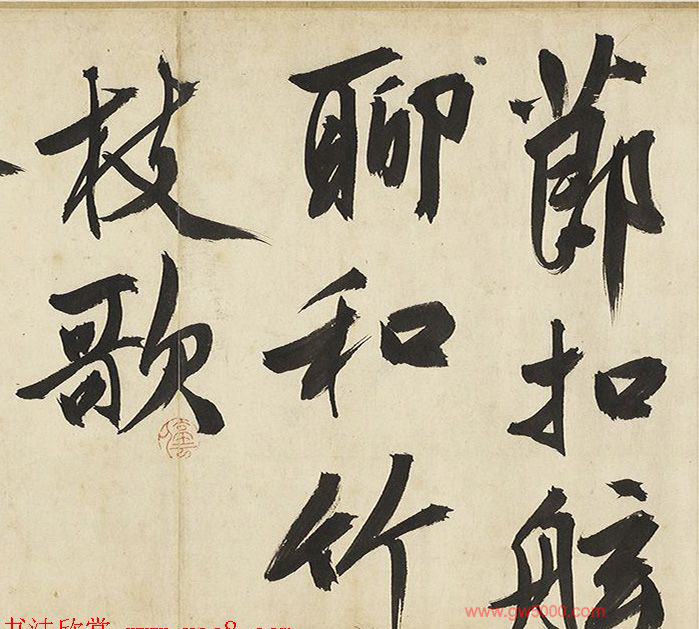 節扣舷
聊和竹
枝歌
www.gw5000.com
书法欣赏